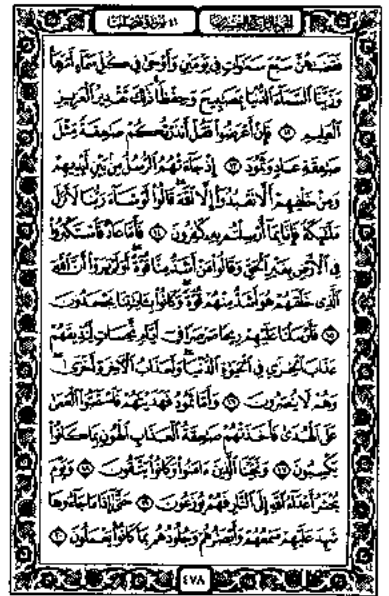 الجزء الرابع والعشرون ٤١ سورة فصلت
فَقَضَىٰهُنَّ سَبْعَ سَمَٰوَاتٍ فِي يَوْمَيْنِ وَأَوْحَىٰ فِي كُلِّ سَمَآءٍ أَمْرَهَا
وَزَيَّنَّا ٱلسَّمَآءَ ٱلدُّنْيَا بِمَصَٰبِيحَ وَحِفْظًا ذَٰلِكَ تَقْدِيرُ ٱلْعَزِيزِ
ٱلْعَلِيمِ ۝ فَإِنْ أَعْرَضُوا۟ فَقُلْ أَنذَرْتُكُمْ صَٰعِقَةً مِّثْلَ
صَٰعِقَةِ عَادٍ وَثَمُودَ ۝ إِذْ جَآءَتْهُمُ ٱلرُّسُلُ مِنۢ بَيْنِ أَيْدِيهِمْ
وَمِنْ خَلْفِهِمْ أَلَّا تَعْبُدُوٓا۟ إِلَّا ٱللَّهَ قَالُوا۟ لَوْ شَآءَ رَبُّنَا لَأَنزَلَ
مَلَٰٓئِكَةً فَإِنَّا بِمَآ أُرْسِلْتُم بِهِۦ كَٰفِرُونَ ۝ فَأَمَّا عَادٌ فَٱسْتَكْبَرُوا۟
فِي ٱلْأَرْضِ بِغَيْرِ ٱلْحَقِّ وَقَالُوا۟ مَنْ أَشَدُّ مِنَّا قُوَّةً أَوَلَمْ يَرَوْا۟ أَنَّ ٱللَّهَ
ٱلَّذِي خَلَقَهُمْ هُوَ أَشَدُّ مِنْهُمْ قُوَّةً وَكَانُوا۟ بِـَٔايَٰتِنَا يَجْحَدُونَ
۝ فَأَرْسَلْنَا عَلَيْهِمْ رِيحًا صَرْصَرًا فِيٓ أَيَّامٍ نَّحِسَاتٍ لِّنُذِيقَهُمْ
عَذَابَ ٱلْخِزْيِ فِي ٱلْحَيَوٰةِ ٱلدُّنْيَا وَلَعَذَابُ ٱلْـَٔاخِرَةِ أَخْزَىٰ
وَهُمْ لَا يُنصَرُونَ ۝ وَأَمَّا ثَمُودُ فَهَدَيْنَٰهُمْ فَٱسْتَحَبُّوا۟ ٱلْعَمَىٰ
عَلَى ٱلْهُدَىٰ فَأَخَذَتْهُمْ صَٰعِقَةُ ٱلْعَذَابِ ٱلْهُونِ بِمَا كَانُوا۟
يَكْسِبُونَ ۝ وَنَجَّيْنَا ٱلَّذِينَ ءَامَنُوا۟ وَكَانُوا۟ يَتَّقُونَ ۝ وَيَوْمَ
يُحْشَرُ أَعْدَآءُ ٱللَّهِ إِلَى ٱلنَّارِ فَهُمْ يُوزَعُونَ ۝ حَتَّىٰٓ إِذَا مَا جَآءُوهَا
شَهِدَ عَلَيْهِمْ سَمْعُهُمْ وَأَبْصَٰرُهُمْ وَجُلُودُهُم بِمَا كَانُوا۟ يَعْمَلُونَ ۝
٤٧٨